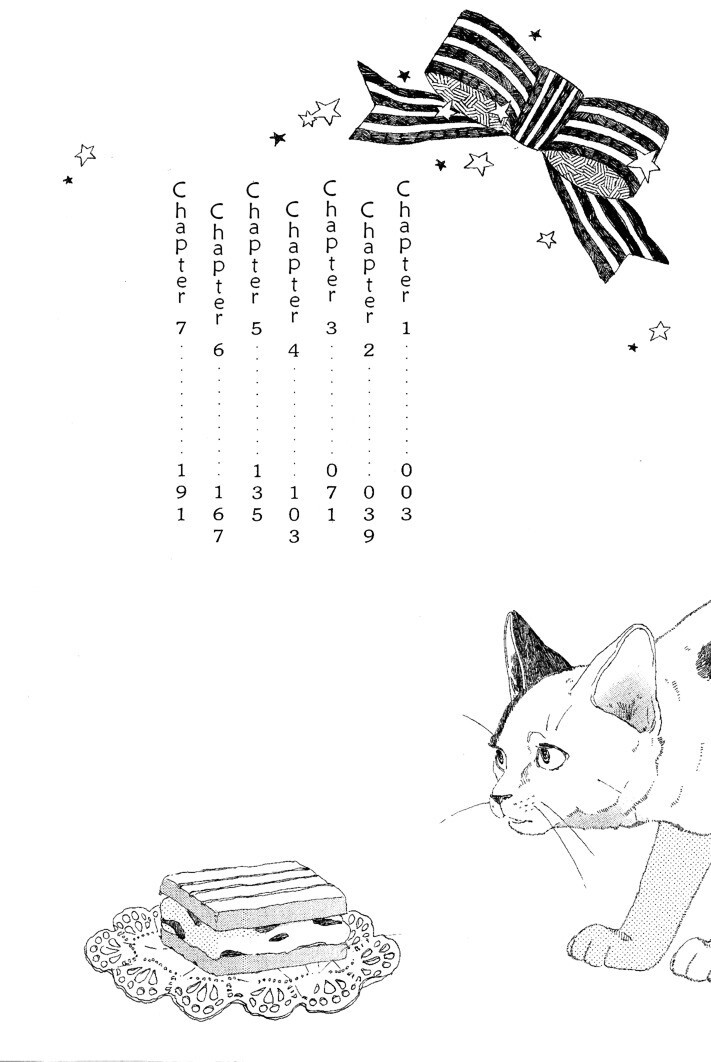 Chapter 1 ........ 003
Chapter 2 ........ 039
Chapter 3 ........ 071
Chapter 4 ........ 103
Chapter 5 ........ 135
Chapter 6 ........ 167
Chapter 7 ........ 191